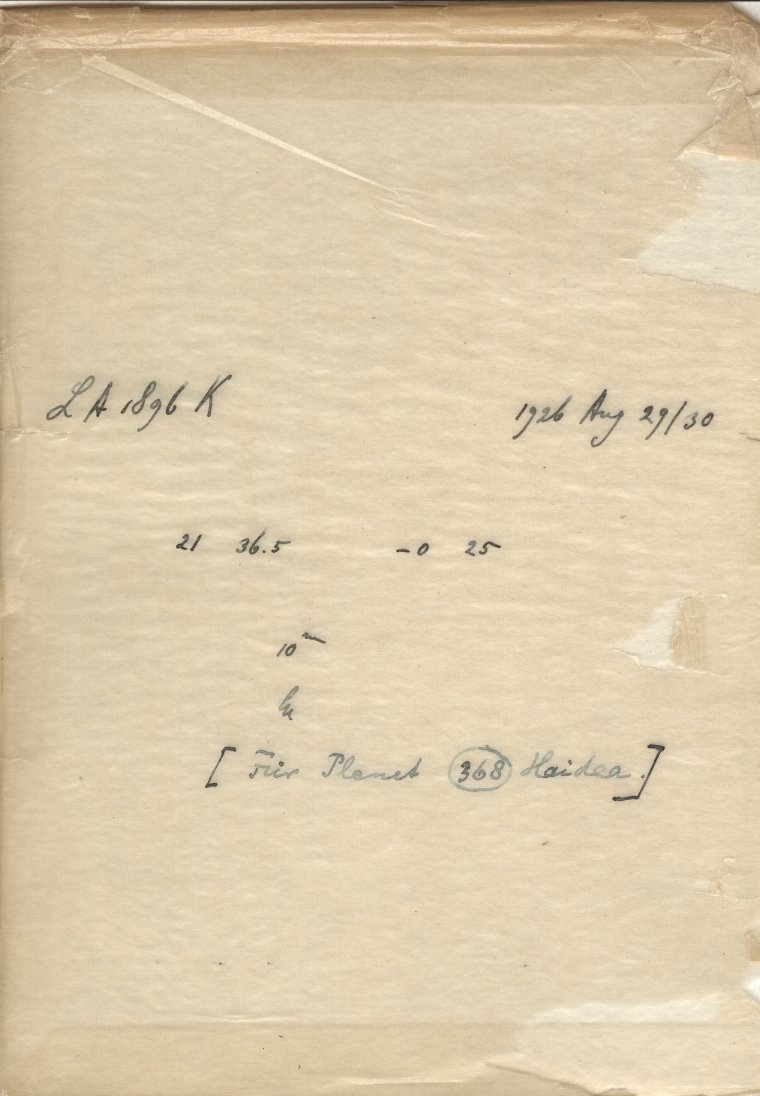 L A 1896 K 1926 Aug 29/30
21 36.5 -0 25
10ᵐ
[ Für Planet 368 Haidea. ]